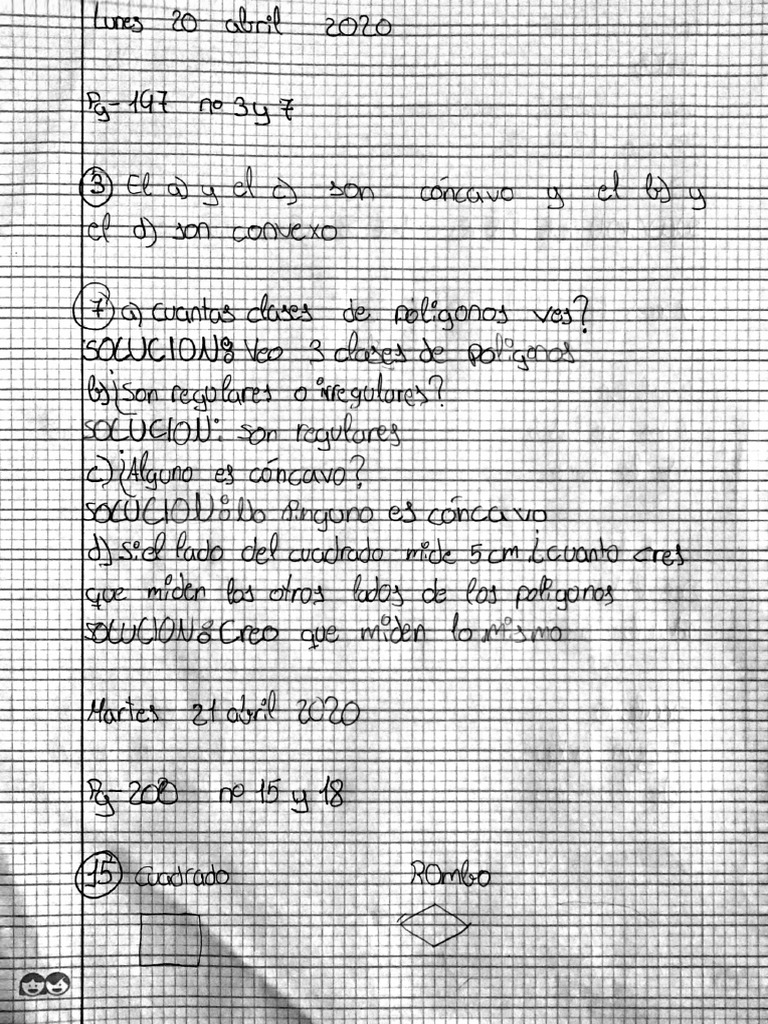 Lunes 20 abril 2020
Pg-197 nº 3 y 7
③ El a) y el c) son cóncavo y el b) y
el d) son convexo
⑦ a) cuantas clases de póligonos ves?
SOLUCIÓN: Veo 3 clases de poligonos
b) ¿Son regulares o irregulares?
SOLUCIÓN: son regulares
c) ¿Alguno es cóncavo?
SOLUCIÓN: No ninguno es cóncavo
d) Si el lado del cuadrado mide 5 cm ¿cuanto cres
que miden los otros lados de los poligonos
SOLUCION: Creo que miden lo mismo
Martes 21 abril 2020
Pg-200 nº 15 y 18
⑮ Cuadrado ROmbo